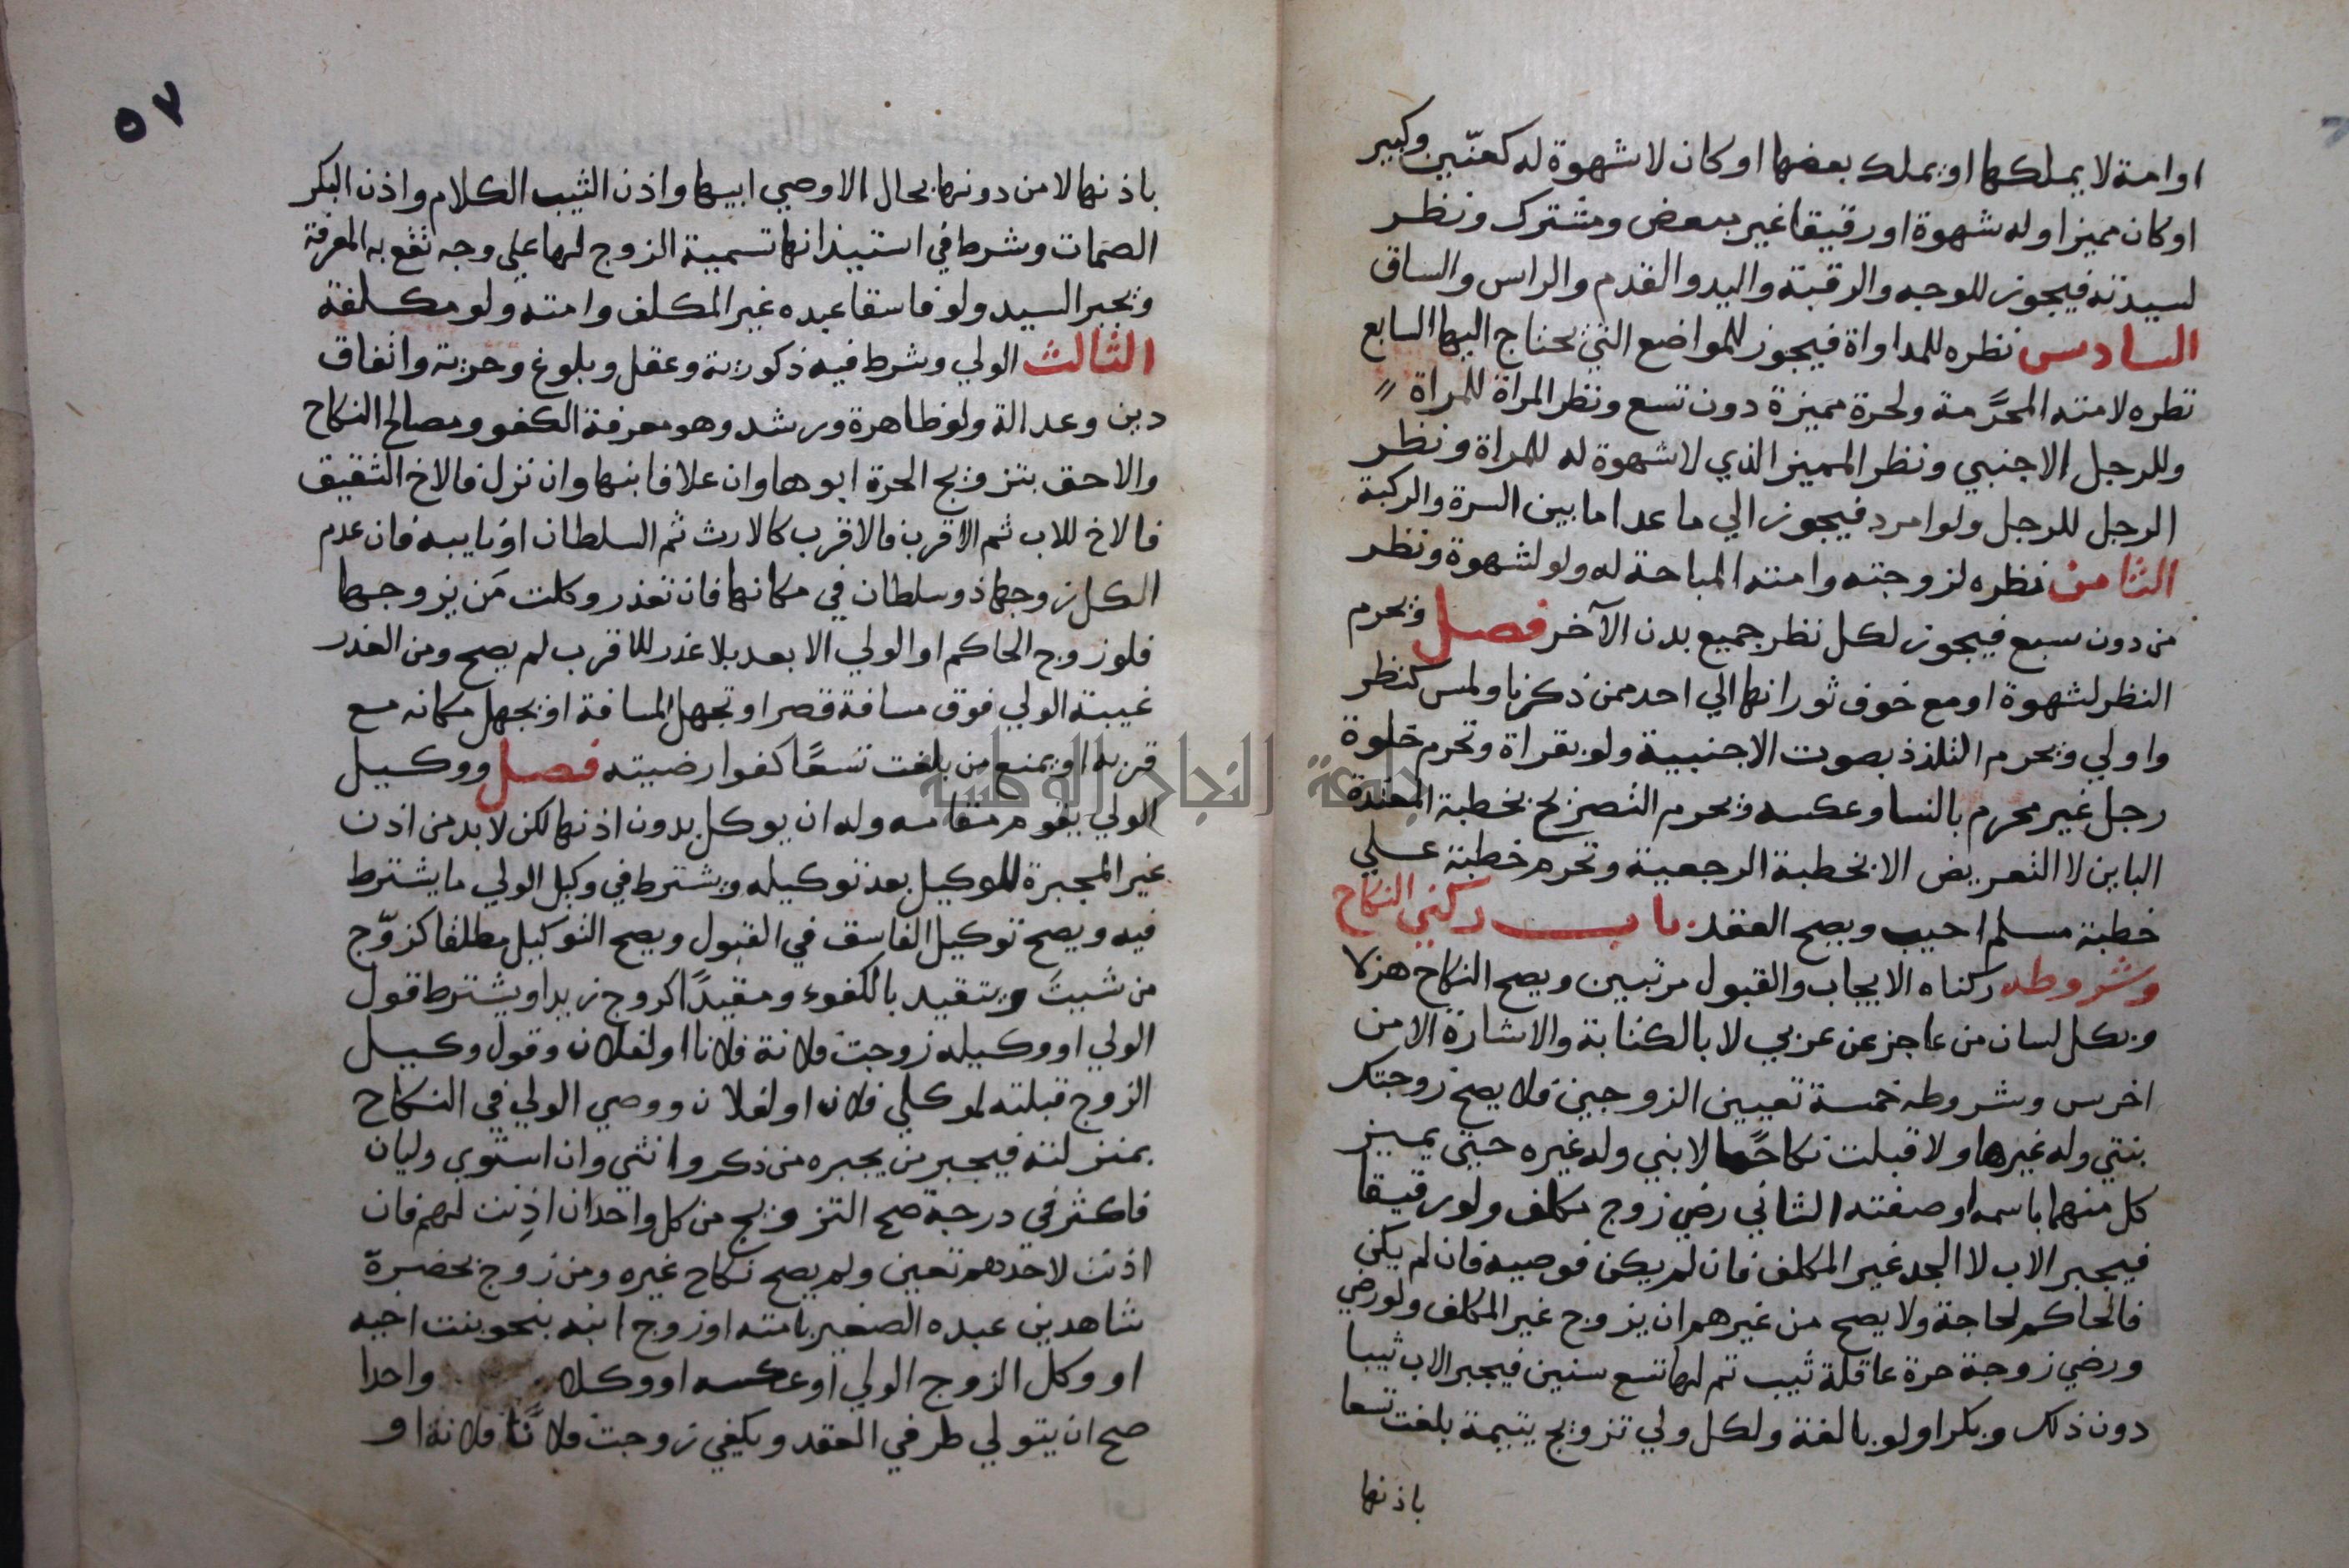 او امة لا يملكها او يملك بعضها او كان لا شهوة له كعنّين وكبير
او كان مميزا وله شهوة او رقيقا غير مبعض ومشترك ونظر
لسيدته فيجوز للوجه والرقبة واليد والقدم والراس والساق
السادس نظره للمداواة فيجوز للمواضع التي يحتاج اليها السابع
نظره لامته المحرَّمة ولحرة مميزة دون تسع ونظر المراة للمراة
وللرجل الاجنبي ونظر المميز الذي لا شهوة له للمراة ونظر
الرجل للرجل ولو امرد فيجوز الي ما عدا ما بين السرة والركبة
الثامن نظره لزوجته وامته المباحة له ولو لشهوة ونظر
من دون سبع فيجوز لكل نظر جميع بدن الآخر فصل ويحرم
النظر لشهوة او مع خوف ثورانها الي احد ممن ذكرنا ولمس كنظر
واولي ويحرم التلذذ بصوت الاجنبية ولو بقراة وتحرم خلوة
رجل غير محرم بالنسا وعكسه ويحرم التصريح بخطبة المعتدة
الباين لا التعريض الا بخطبة الرجعية وتحرم خطبة علي
خطبة مسلم اجيب ويصح العقد باب ركني النكاح
وشروطه ركناه الايجاب والقبول مرتبين ويصح النكاح هزلا
وبكل لسان من عاجز عن عربي لا بالكتابة والاشارة الا من
اخرس وشروطه خمسة تعيين الزوجين فلا يصح زوجتك
بنتي وله غيرها ولا قبلت نكاحها لابني وله غيره حتي يميز
كل منهما باسمه او صفته الثاني رضي زوج مكلف ولو رقيقا
فيجبر الاب لا الجد غير المكلف فان لم يكن فوصيه فان لم يكن
فالحاكم لحاجة ولا يصح من غيرهم ان يزوج غير المكلف ولو رضي
ورضي زوجة حرة عاقلة ثيب تم لها تسع سنين فيجبر الاب ثيبا
دون ذلك وبكرا ولو بالغة ولكل ولي تزويج يتيمة بلغت تسعا
باذنها
٥٧
باذنها لا من دونها بحال الا وصي ابيها واذن الثيب الكلام واذن البكر
الصمات وشرط في استيذانها تسمية الزوج لها علي وجه تقع به المعرفة
ويجبر السيد ولو فاسقا عبده غير المكلف وامته ولو مكلفة
الثالث الولي وشرط فيه ذكورية وعقل وبلوغ وحرية واتفاق
دين وعدالة ولو ظاهرة ورشد وهو معرفة الكفو ومصالح النكاح
والاحق بتزويج الحرة ابوها وان علا فابنها وان نزل فالاخ الشقيق
فالاخ للاب ثم الاقرب فالاقرب كالارث ثم السلطان او نايبه فان عدم
الكل زوجها ذو سلطان في مكانها فان تعذر وكلت مَن يزوجها
فلو زوج الحاكم او الولي الابعد بلا عذر للاقرب لم يصح ومن العذر
غيبة الولي فوق مسافة قصر او تجهل المسافة او يجهل مكانه مع
قربه او يمنع من بلغت تسعًا كفوا رضيته فصل ووكيل
الولي يقوم مقامه وله ان يوكل بدون اذنها لكن لا بد من اذن
غير المجبرة للوكيل بعد توكيله ويشترط في وكيل الولي ما يشترط
فيه ويصح توكيل الفاسق في القبول ويصح التوكيل مطلقا كزوّج
من شيتَ ويتقيد بالكفوء ومقيدًا كزوج زيدا ويشترط قول
الولي او وكيله زوجت فلانة فلانا او لفلان وقول وكيل
الزوج قبلته لموكلي فلان او لفلان ووصي الولي في النكاح
بمنزلته فيجبر من يجبره من ذكر وانثي وان استوي وليان
فاكثر في درجة صح التزويج من كل واحد ان اذِنت لهم فان
اذنت لاحدهم تعين ولم يصح نكاح غيره ومن زوج بحضرة
شاهدين عبده الصغير بامته او زوج ابنه بنحو بنت اخيه
او وكل الزوج الولي او عكسه او وكلا واحدا
صح ان يتولي طرفي العقد ويكفي زوجت فلانًا فلانة او
جامعة النجاح الوطنية